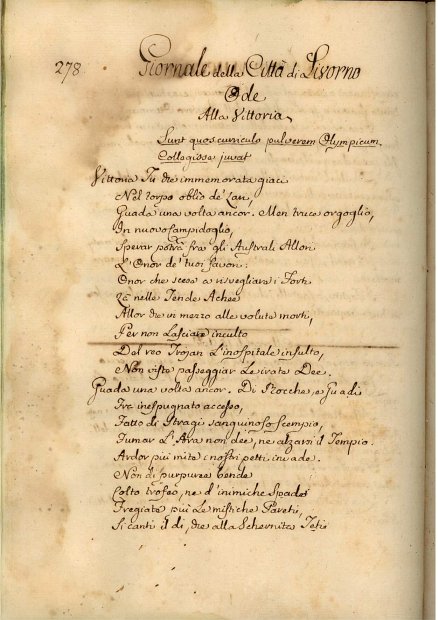 278
Giornale della Città di Livorno
Ode
Alla Vittoria
Sunt quos curriculo pulverem Olympicum
Collegisse juvat
Vittoria Tu che immemorata giaci
Nel torpo oblio de'
Guada una volta ancor. Men truce orgoglio,
In nuovo Campidoglio,
Sperar potrà fra gli Australi Allori
L'Onor de' tuoi favori:
Onor che scese a risvegliare i Forti
Là nelle Tende Achee
Allor che in mezzo alle volute morti,
Per non Lasciare inculto
Del reo Trojan L'inospitale insulto,
Non viste passeggiar Le irate Dee.
Guada una volta ancor. Di Stocche, e
Fra inespugnato accesso,
Fatto di Stragi sanguinoso scempio,
Fumar L'Ara non dee, ne alzarsi il Tempio.
Ardor più mite i nostri petti invade.
Non di purpuree bende
Colto trofeo, ne d'inimiche Spade
Fregiate più Le mistiche Pareti,
Si canti il dì, che alla Schernita Teti